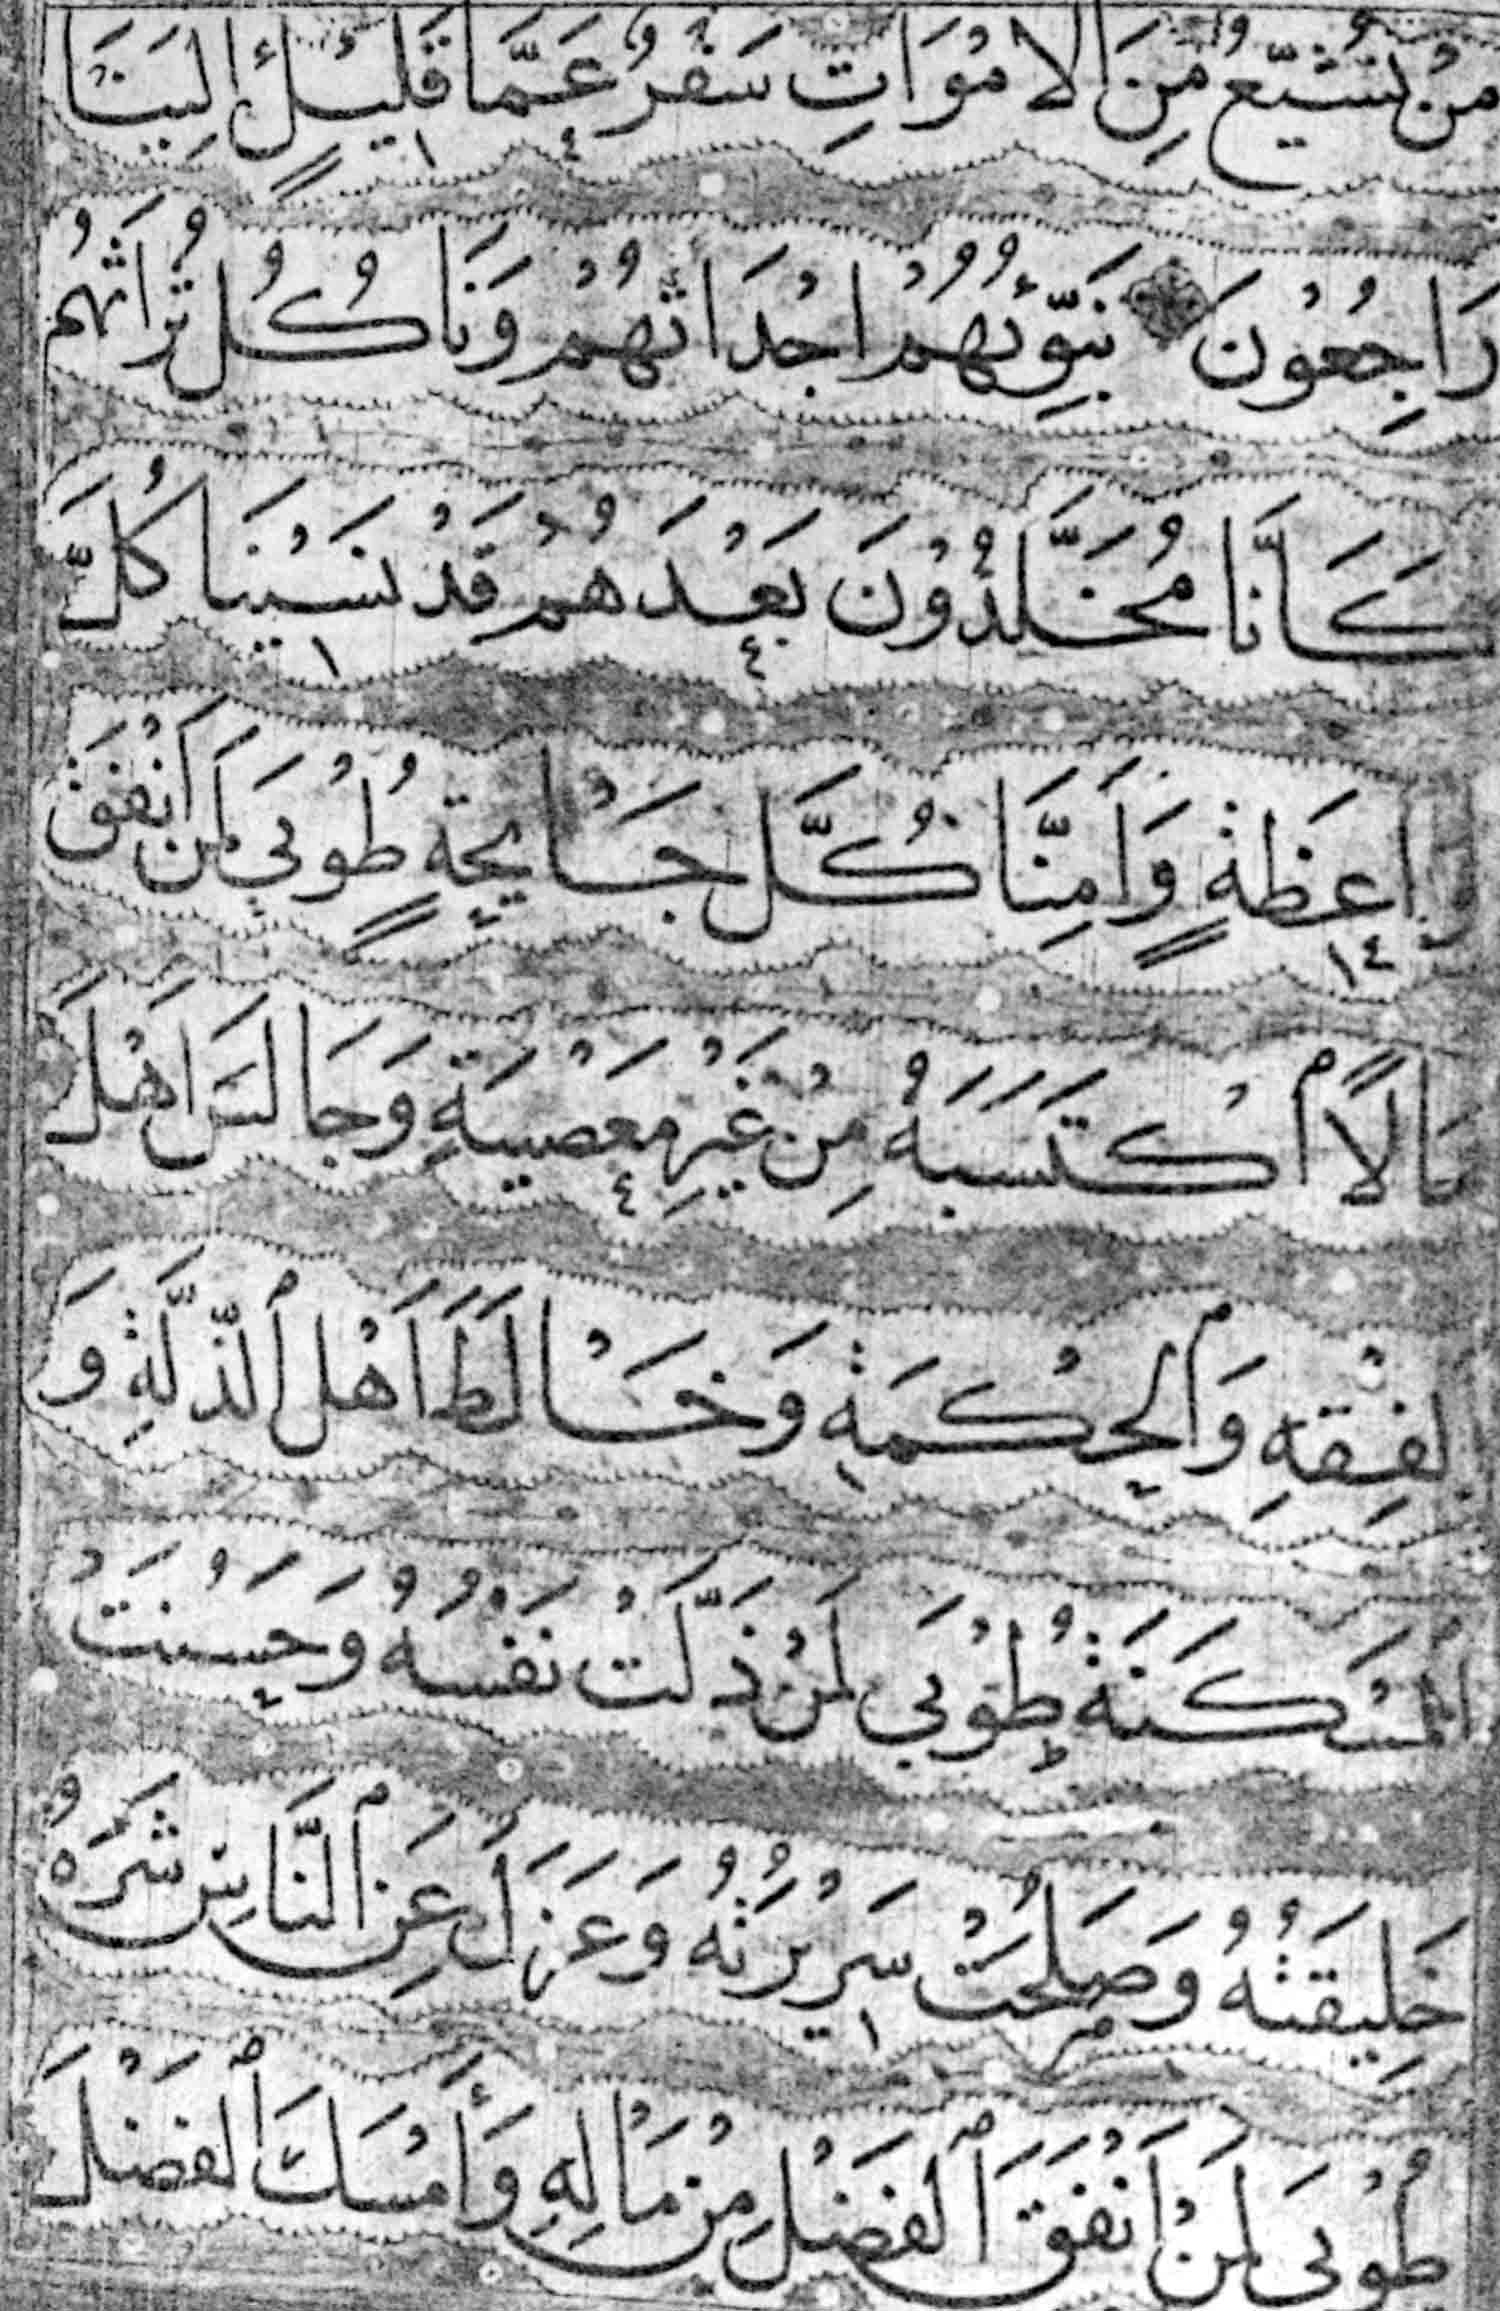 مَنْ نُشَيِّعُ مِنَ الْاَمْوَاتِ سَفْرٌ عَمَّا قَلِيْلٍ اِلَيْنَا
رَاجِعُوْنَ نُبَوِّئُهُمْ اَجْدَاثَهُمْ وَنَاكُلُ تُرَاثَهُمْ
كَاَنَّا مُخَلَّدُوْنَ بَعْدَهُمْ قَدْ نَسِيْنَا كُلَّ
وَاعِظَةٍ وَاَمِنَّا كُلَّ جَايِحَةٍ طُوْبَي لِمَنْ اَنْفَقَ
مَالًا اكْتَسَبَهُ مِنْ غَيْرِ مَعْصِيَةٍ وَجَالَسَ اَهْلَ
الْفِقْهِ وَالْحِكْمَةِ وَخَالَطَ اَهْلَ الذِّلَّةِ وَ
الْمَسْكَنَةِ طُوْبَي لِمَنْ ذَلَّتْ نَفْسُهُ وَحَسُنَتْ
خَلِيْقَتُهُ وَصَلُحَتْ سَرِيْرَتُهُ وَعَزَلَ عَنِ النَّاسِ شَرَّهُ
طُوْبَي لِمَنْ اَنْفَقَ الْفَضْلَ مِنْ مَالِهِ وَاَمْسَكَ الْفَضْلَ